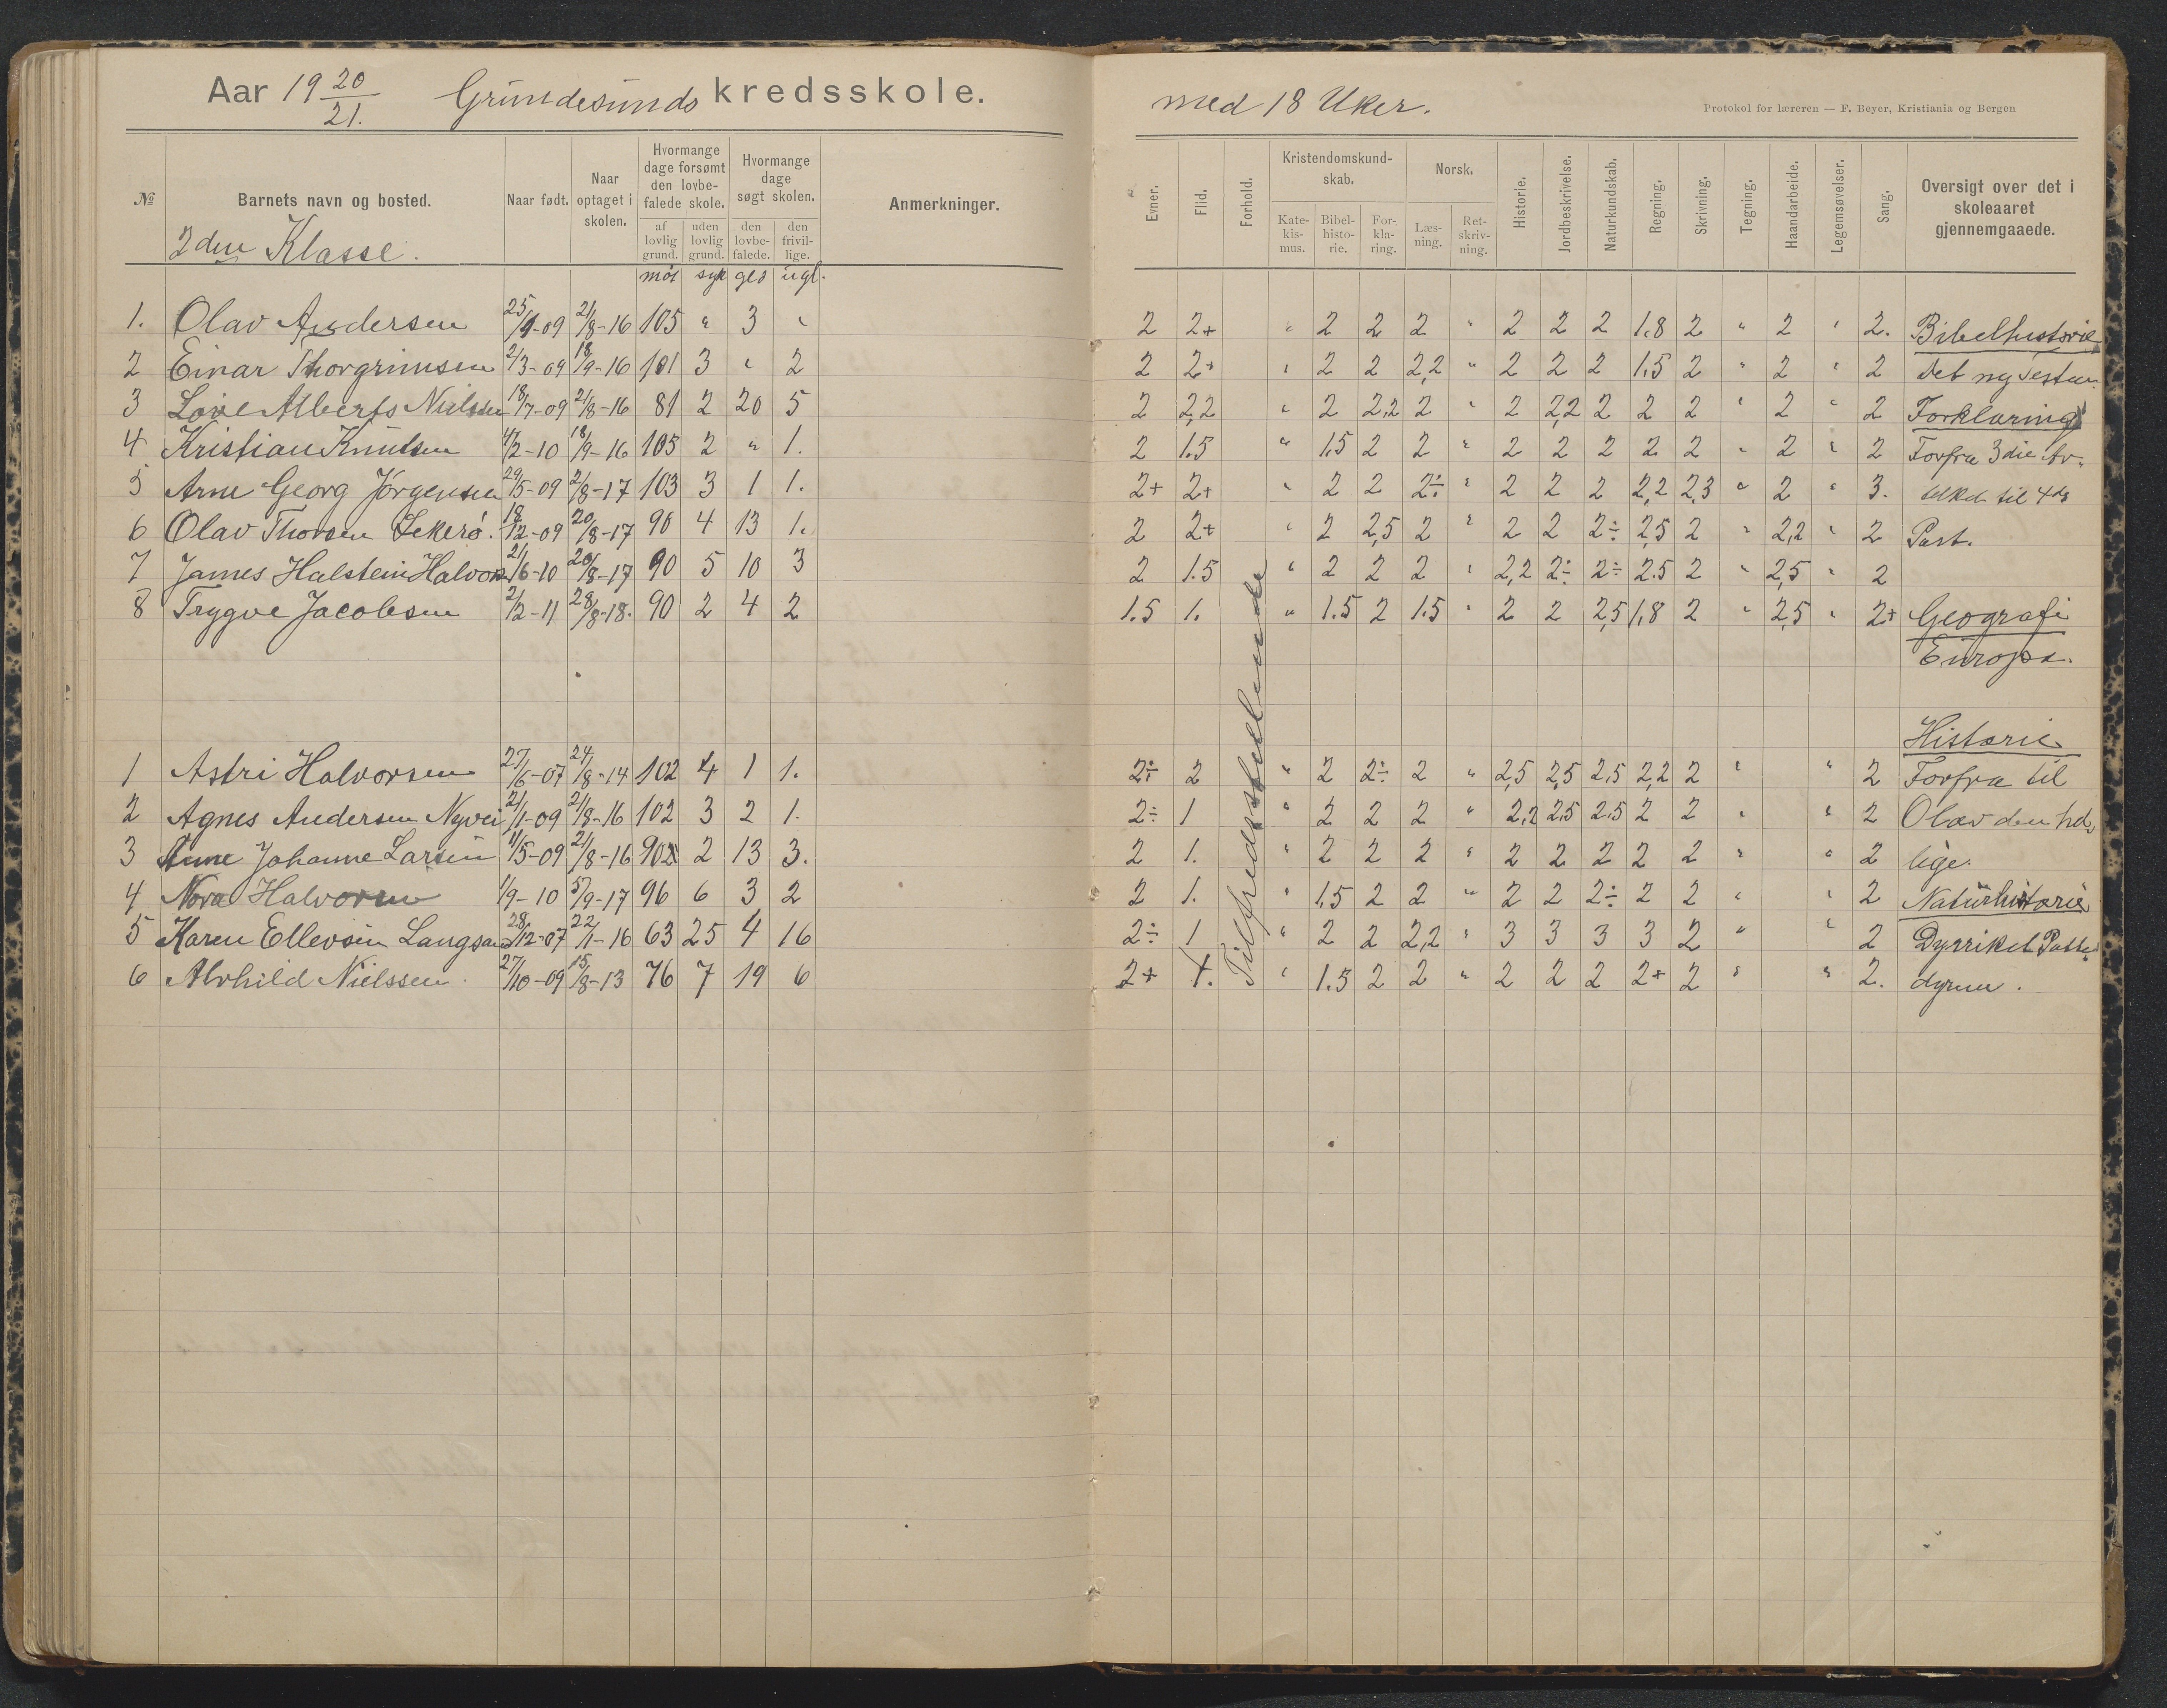 Aar 19 20/21. Grundesunds kredsskole.
med 18 Uker.
Protokol for læreren — F. Beyer, Kristiania og Bergen
№ Barnets navn og bosted. Naar født. Naar optaget i skolen. Hvormange dage forsømt den lovbefalede skole. Hvormange dage søgt skolen. Anmerkninger.
af lovlig grund. uden lovlig grund. den lovbefalede. den frivillige.
2den Klasse.
møt syk ugl.
Evner. Flid. Forhold. Kristendomskundskab. Norsk. Historie. Jordbeskrivelse. Naturkundskab. Regning. Skrivning. Tegning. Haandarbeide. Legemsøvelser. Sang. Oversigt over det i skoleaaret gjennemgaaede.
Katekismus. Bibelhistorie. Forklaring. Læsning. Retskrivning.
1. Olav Andersen 25/1-09 21/8-16 105 " 3 " 2 2+ " 2 2 2 " 2 2 2 1.8 2 " 2 " 2. Bibelhistorie
2 Einar Thorgrimsen 2/3-09 18/9-16 101 3 " 2 2 2+ " 2 2 2,2 " 2 2 2 1.5 2 " 2 " 2 Det ny Testam.
3 Alberts Nielsen 18/7-09 21/8-16 81 2 20 5 2 2,2 " 2 2,2 2 " 2 2,2 2 2 2 " 2 " 2 Forklaring
4 Kristian Knutsen 4/2-10 18/9-16 105 2 " 1. 2 1.5 " 1.5 2 2 " 2 2 2 2 2 " 2 " 2 Forfra 3die Ar-
5 Arne Georg Jørgensen 29/5-09 21/8-17 103 3 1 1. 2+ 2+ " 2 2 2÷ " 2 2 2 2,2 2,3 " 2 " 3. tikel til 4de
6 Olav Thorsen Lekerø. 18/12-09 20/8-17 90 4 13 1. 2 2+ " 2 2,5 2 " 2 2 2÷ 2,5 2 " 2,2 " 2 Part.
7 James Halstein Halvors 21/6-10 20/8-17 90 5 10 3 2 1.5 " 2 2 2 " 2,2 2÷ 2÷ 2.5 2 " 2,5 " 2
8 Trygve Jacobsen 21/2-11 28/8-18. 90 2 4 2 1.5 1. " 1.5 2 1.5 " 2 2 2,5 1,8 2 " 2,5 " 2+ Geografi
Europa.
Tilfredsstillende
Historie
1 Astri Halvorsen 27/6-07 24/8-14 102 4 1 1. 2÷ 2 " 2 2÷ 2 " 2,5 2,5 2.5 2,2 2 " " 2 Forfra til
2 Agnes Andersen Nyvei 21/1-09 21/8-16 102 3 2 1. 2÷ 1 " 2 2 2 " 2,2 2,5 2.5 2 2 " " 2 Olav den hel
3 Anne Johanne Larsen 11/5-09 21/8-16 2 13 3. 2 1. " 2 2 2 " 2 2 2 2 2 " " 2 lige.
4 Nora Halvorsen 1/9-10 5/9-17 96 6 3 2 2 1. " 1.5 2 2 " 2 2 2÷ 2 2 " " 2 Naturhistorie
5 Karen Ellevsen Langsand 28/12-07 22/1-16 63 25 4 16 2÷ 1 " 2 2 2,2 " 3 3 3 3 2 " " 2 Dyrriket Patte
6 Alvhild Nielssen. 27/10-09 15/8-13 76 7 19 6 2+ 1. " 1.5 2 2 " 2 2 2 2+ 2 " " 2. dyrene.